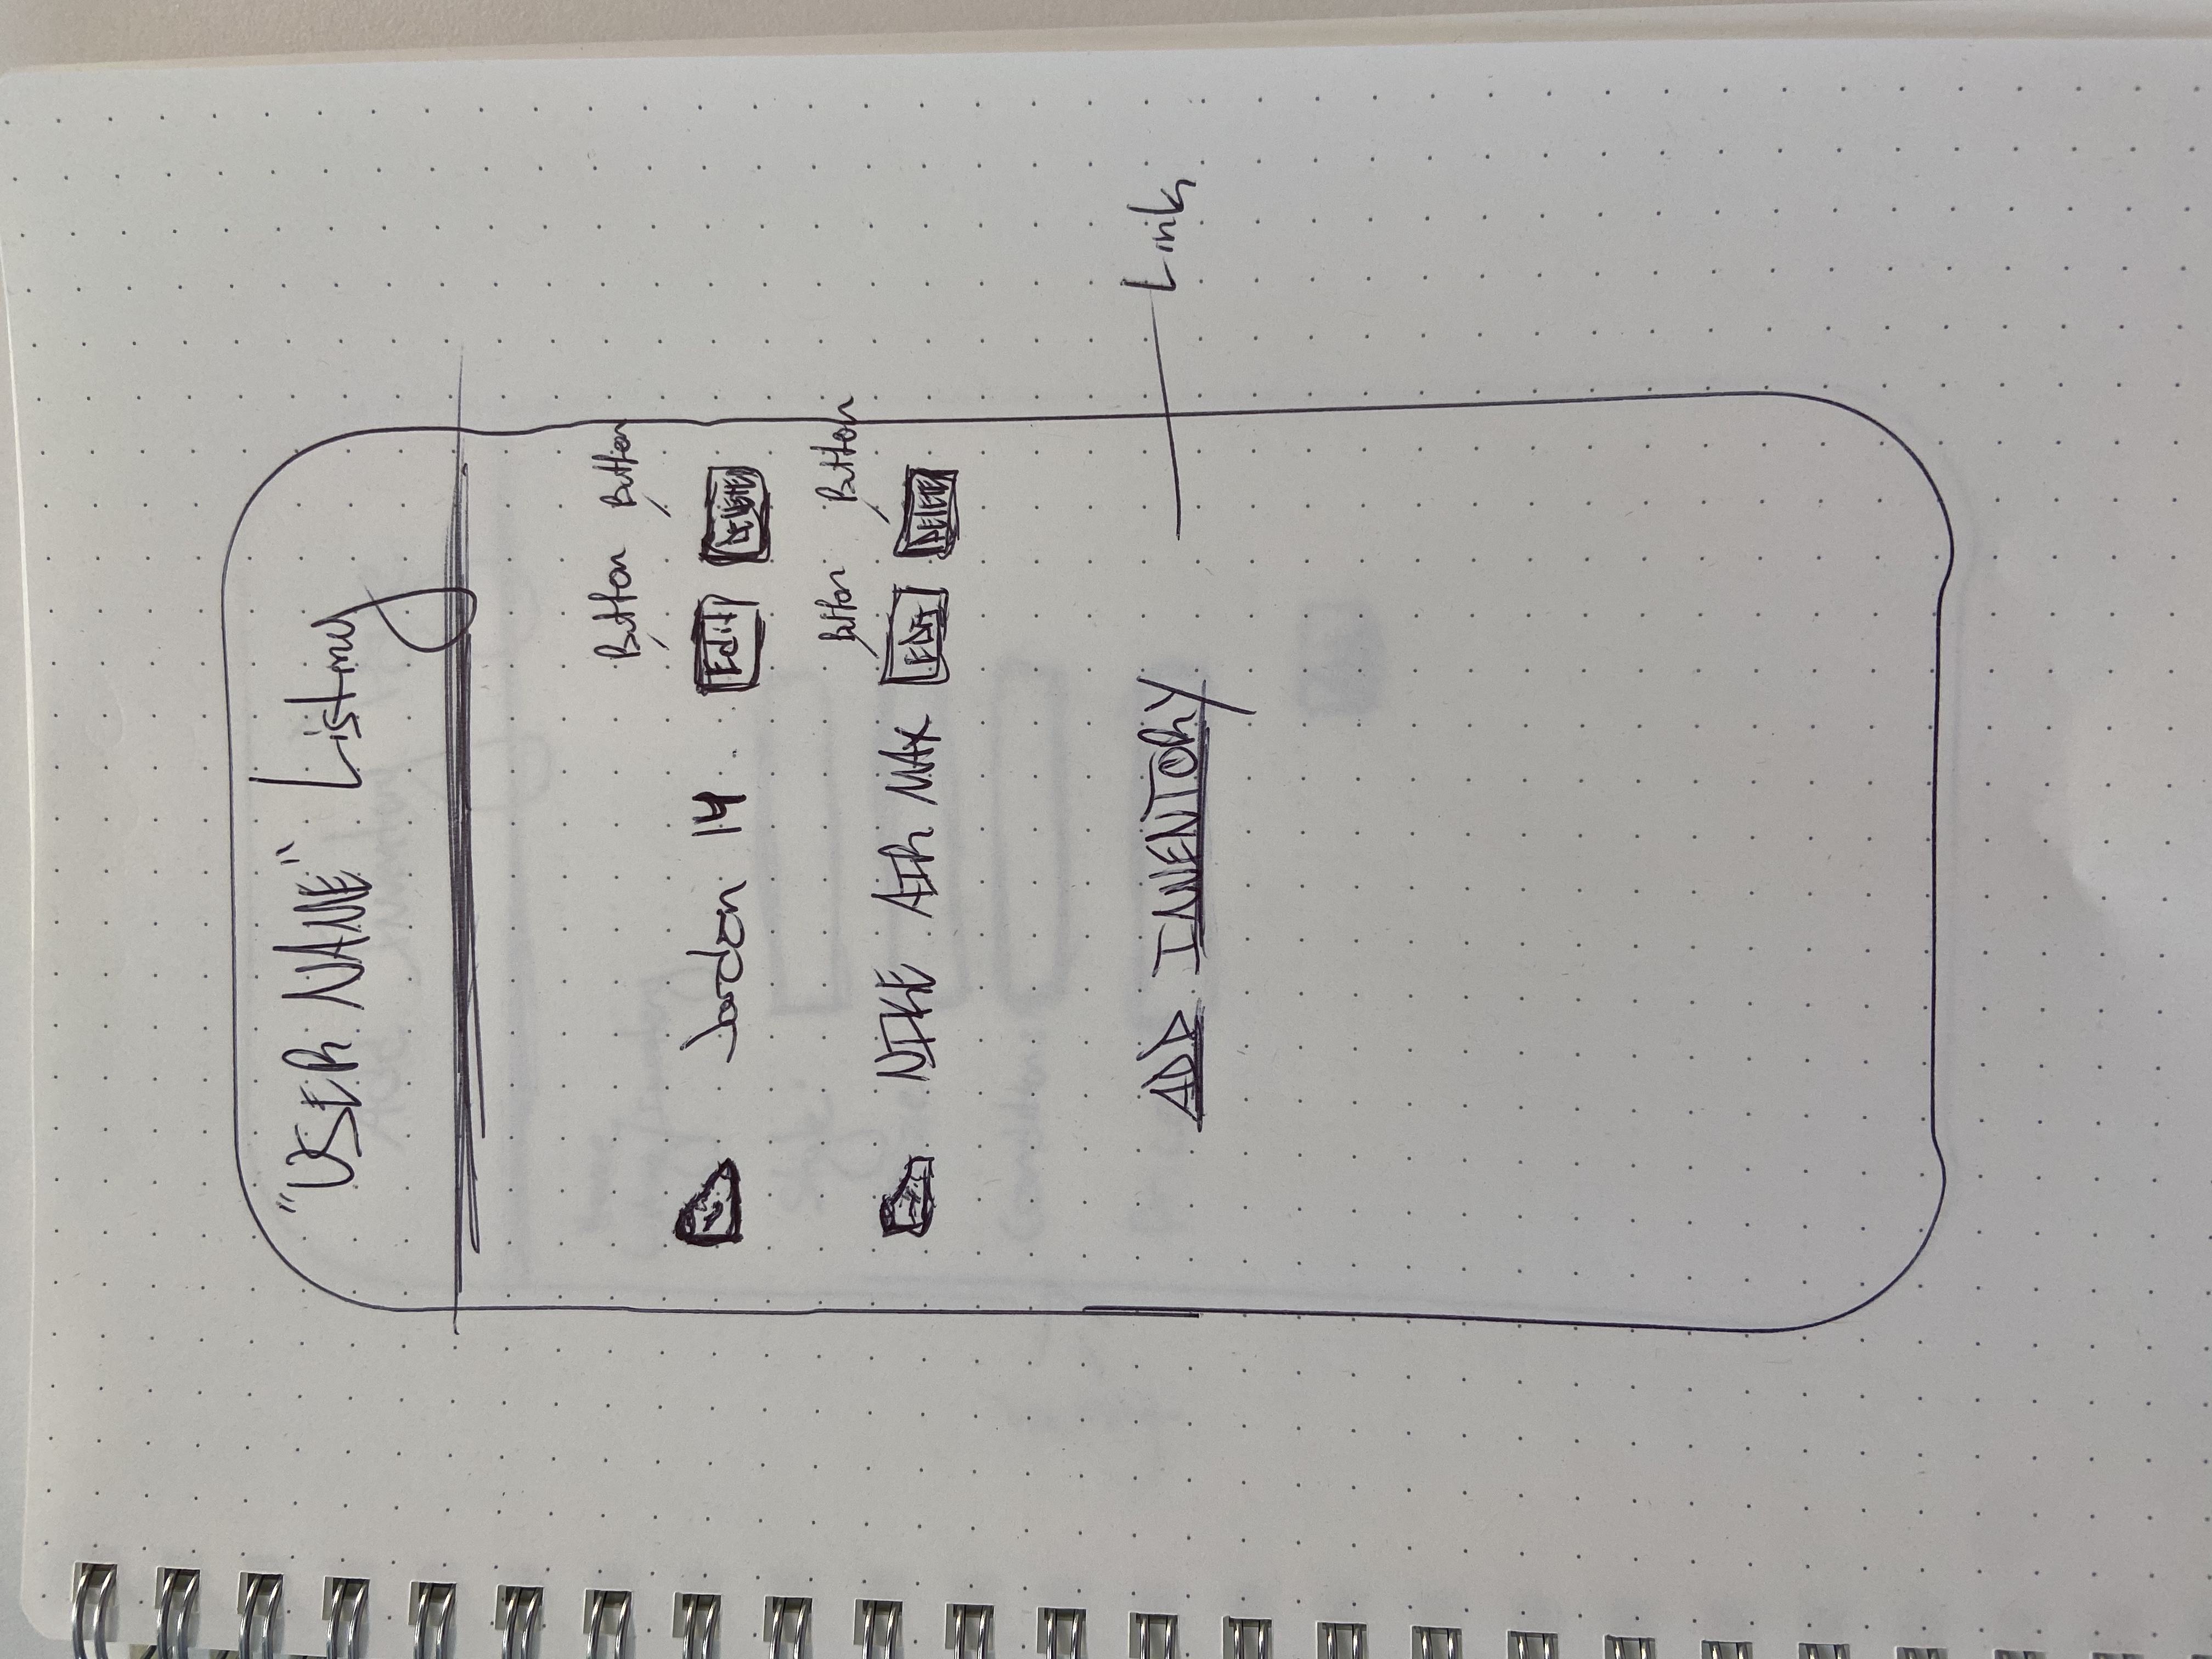 "USER NAME" Listing
Button Button
Jordan 14 Edit DELETE
Button Button
NIKE AIR MAX EDIT DELETE
ADD INVENTORY Link